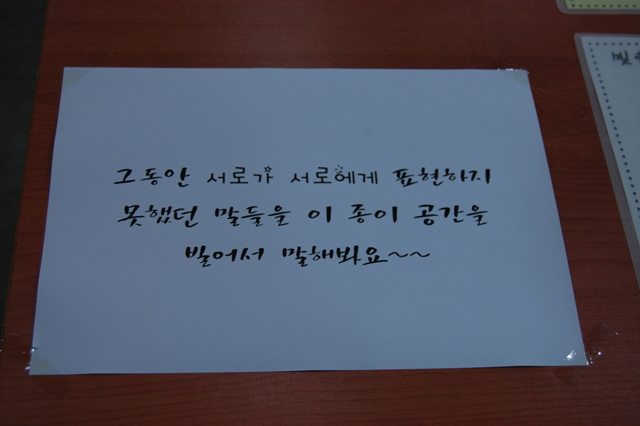 그동안 서로가 서로에게 표현하지
못했던 말들을 이 종이 공간을
빌어서 말해봐요~~